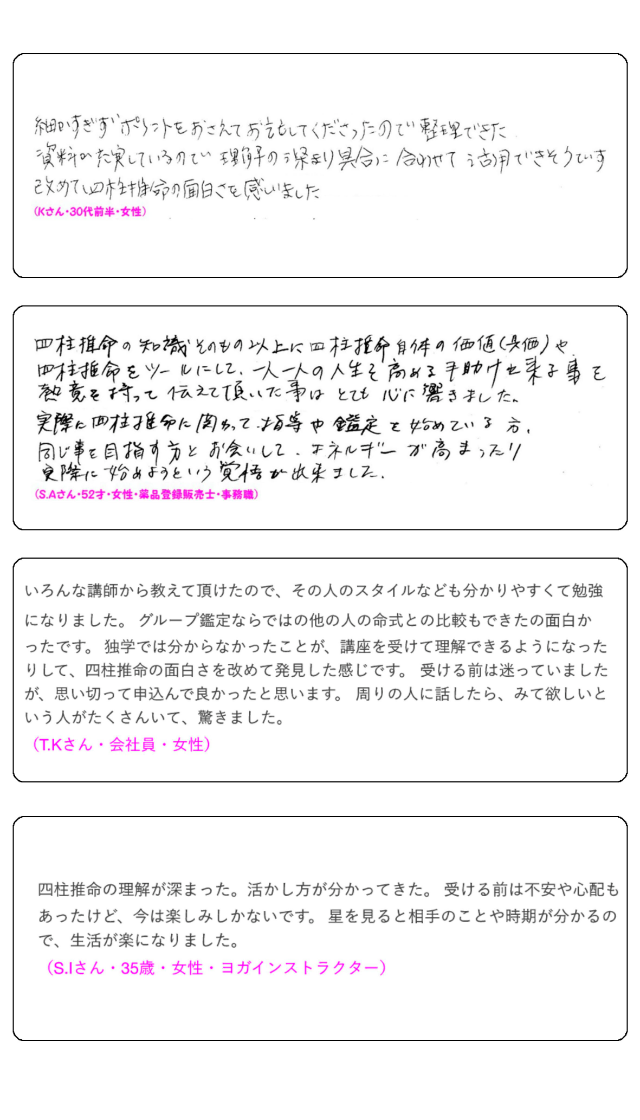 細かすぎずポイントをおさえておはなししてくださったので整理できた
資料が充実しているので理解の深まり具合に合わせて活用できそうです
改めて四柱推命の面白さを感じました
(Kさん・30代前半・女性)
四柱推命の知識そのもの以上に四柱推命自体の価値(真価)や
四柱推命をツールにして、一人一人の人生を高める手助けを来る事を
熱意を持って伝えて頂いた事はとても心に響きました。
実際に四柱推命に関わって指導や鑑定を始めている方、
同じ事を目指す方とお会いして、エネルギーが高まったり
実際に始めようという覚悟が出来ました。
(S.Aさん・52才・女性・薬品登録販売士・事務職)
いろんな講師から教えて頂けたので、その人のスタイルなども分かりやすくて勉強
になりました。 グループ鑑定ならではの他の人の命式との比較もできたの面白か
ったです。 独学では分からなかったことが、講座を受けて理解できるようになった
りして、四柱推命の面白さを改めて発見した感じです。 受ける前は迷っていました
が、思い切って申込んで良かったと思います。 周りの人に話したら、みて欲しいと
いう人がたくさんいて、驚きました。
（T.Kさん・会社員・女性）
四柱推命の理解が深まった。活かし方が分かってきた。 受ける前は不安や心配も
あったけど、今は楽しみしかないです。 星を見ると相手のことや時期が分かるの
で、生活が楽になりました。
（S.Iさん・35歳・女性・ヨガインストラクター）